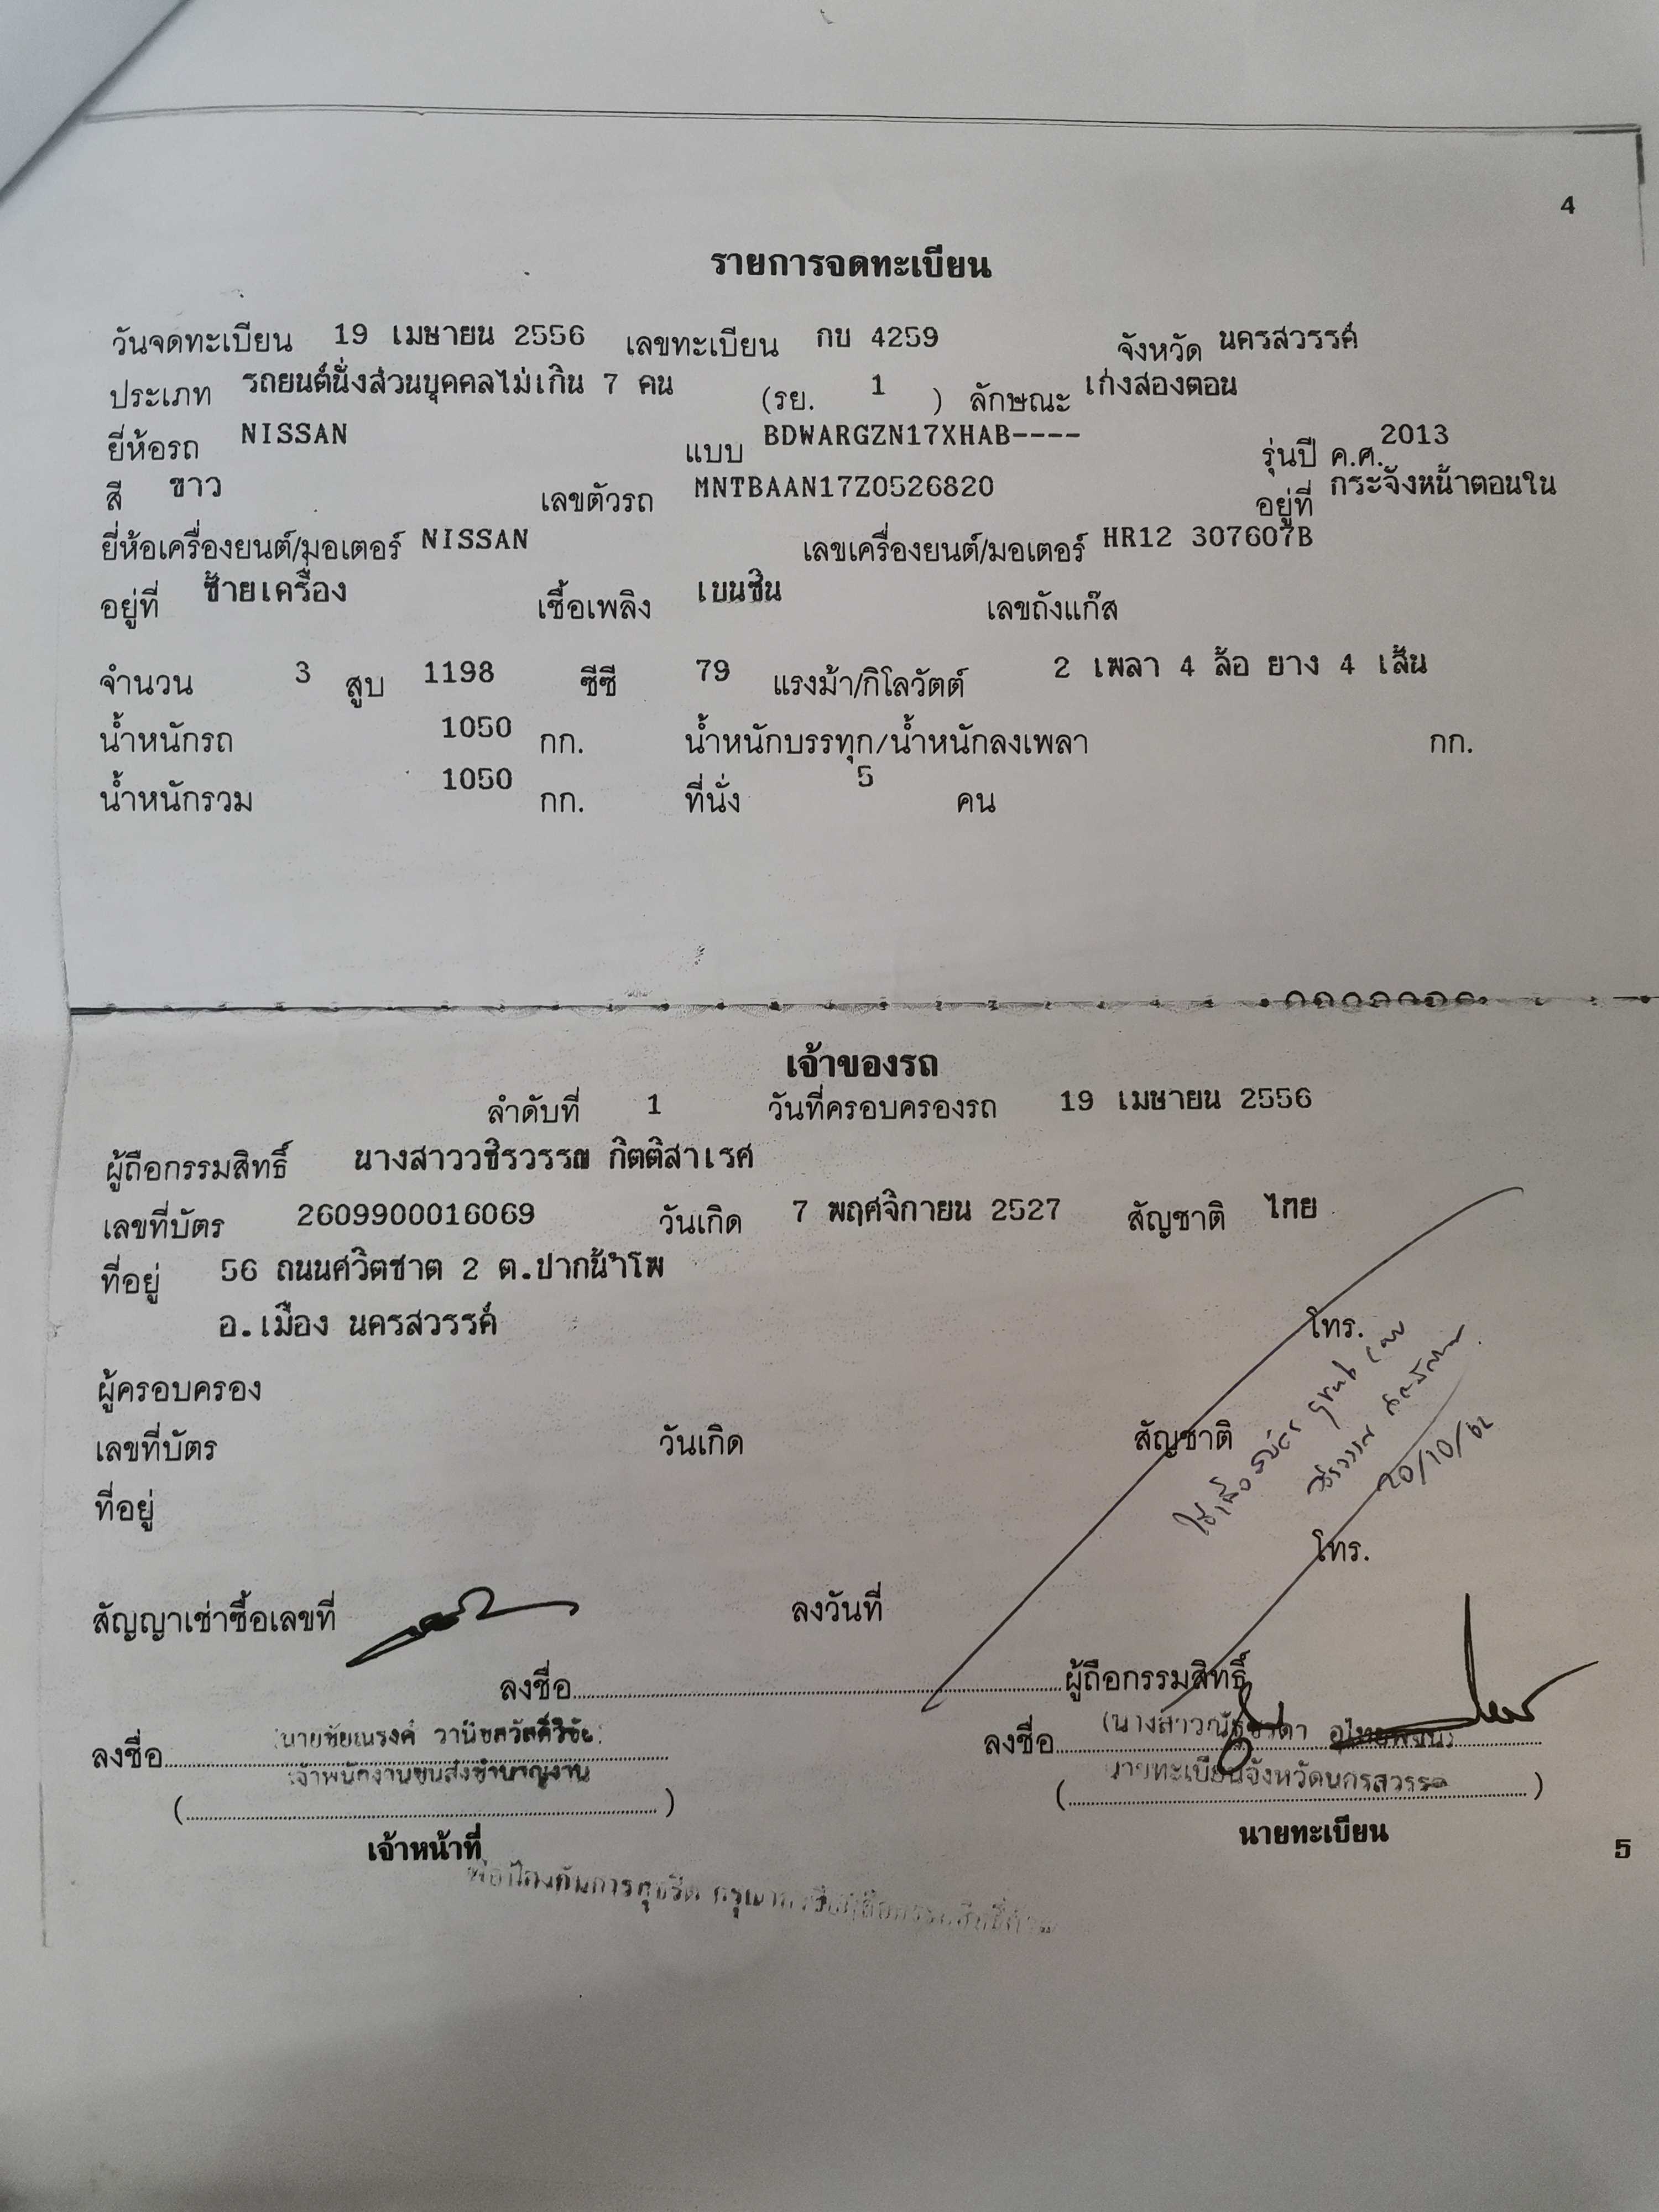 4
รายการจดทะเบียน
วันจดทะเบียน 19 เมษายน 2556 เลขทะเบียน กบ 4259 จังหวัด นครสวรรค์
ประเภท รถยนต์นั่งส่วนบุคคลไม่เกิน 7 คน (รย. 1 ) ลักษณะ เก๋งสองตอน
ยี่ห้อรถ NISSAN แบบ BDWARGZN17XHAB---- รุ่นปี ค.ศ. 2013
สี ขาว เลขตัวรถ MNTBAAN17Z0526820 อยู่ที่ กระจังหน้าตอนใน
ยี่ห้อเครื่องยนต์/มอเตอร์ NISSAN เลขเครื่องยนต์/มอเตอร์ HR12 307607B
อยู่ที่ ซ้ายเครื่อง เชื้อเพลิง เบนซิน เลขถังแก๊ส
จำนวน 3 สูบ 1198 ซีซี 79 แรงม้า/กิโลวัตต์ 2 เพลา 4 ล้อ ยาง 4 เส้น
น้ำหนักรถ 1050 กก. น้ำหนักบรรทุก/น้ำหนักลงเพลา กก.
น้ำหนักรวม 1050 กก. ที่นั่ง 5 คน
เจ้าของรถ
ลำดับที่ 1 วันที่ครอบครองรถ 19 เมษายน 2556
ผู้ถือกรรมสิทธิ์ นางสาววชิรวรรณ กิตติสาเรศ
เลขที่บัตร 2609900016069 วันเกิด 7 พฤศจิกายน 2527 สัญชาติ ไทย
ที่อยู่ 56 ถนนศวิตชาต 2 ต.ปากน้ำโพ
อ.เมือง นครสวรรค์
โทร.
ผู้ครอบครอง
เลขที่บัตร วันเกิด สัญชาติ
ที่อยู่
โทร.
20/10/62
สัญญาเช่าซื้อเลขที่ ลงวันที่
ลงชื่อ ผู้ถือกรรมสิทธิ์
ลงชื่อ (นายชัยณรงค์ วานิชสวัสดิ์วิชัย) ลงชื่อ
เจ้าพนักงานขนส่งชำนาญงาน นายทะเบียนจังหวัดนครสวรรค์
เจ้าหน้าที่ นายทะเบียน
5
เพื่อป้องกันการทุจริต